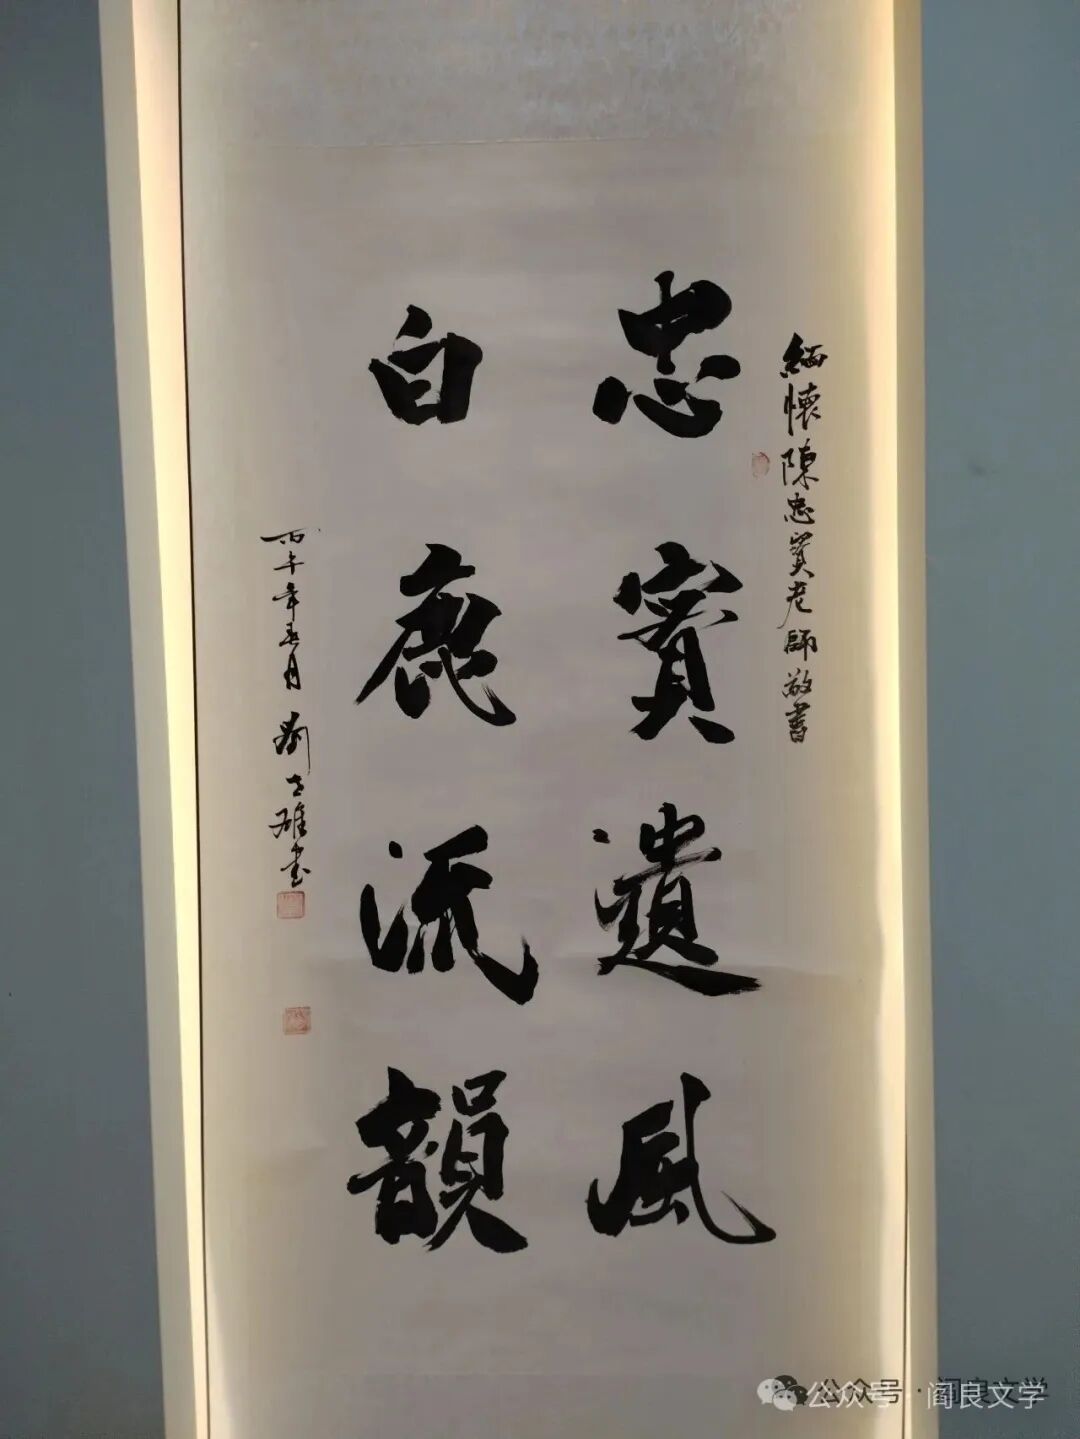 緬懷陳忠實老師敬書
忠實遺風
白鹿流韻
丙午年春月 劉士雄書
公众号 · 阎良文学